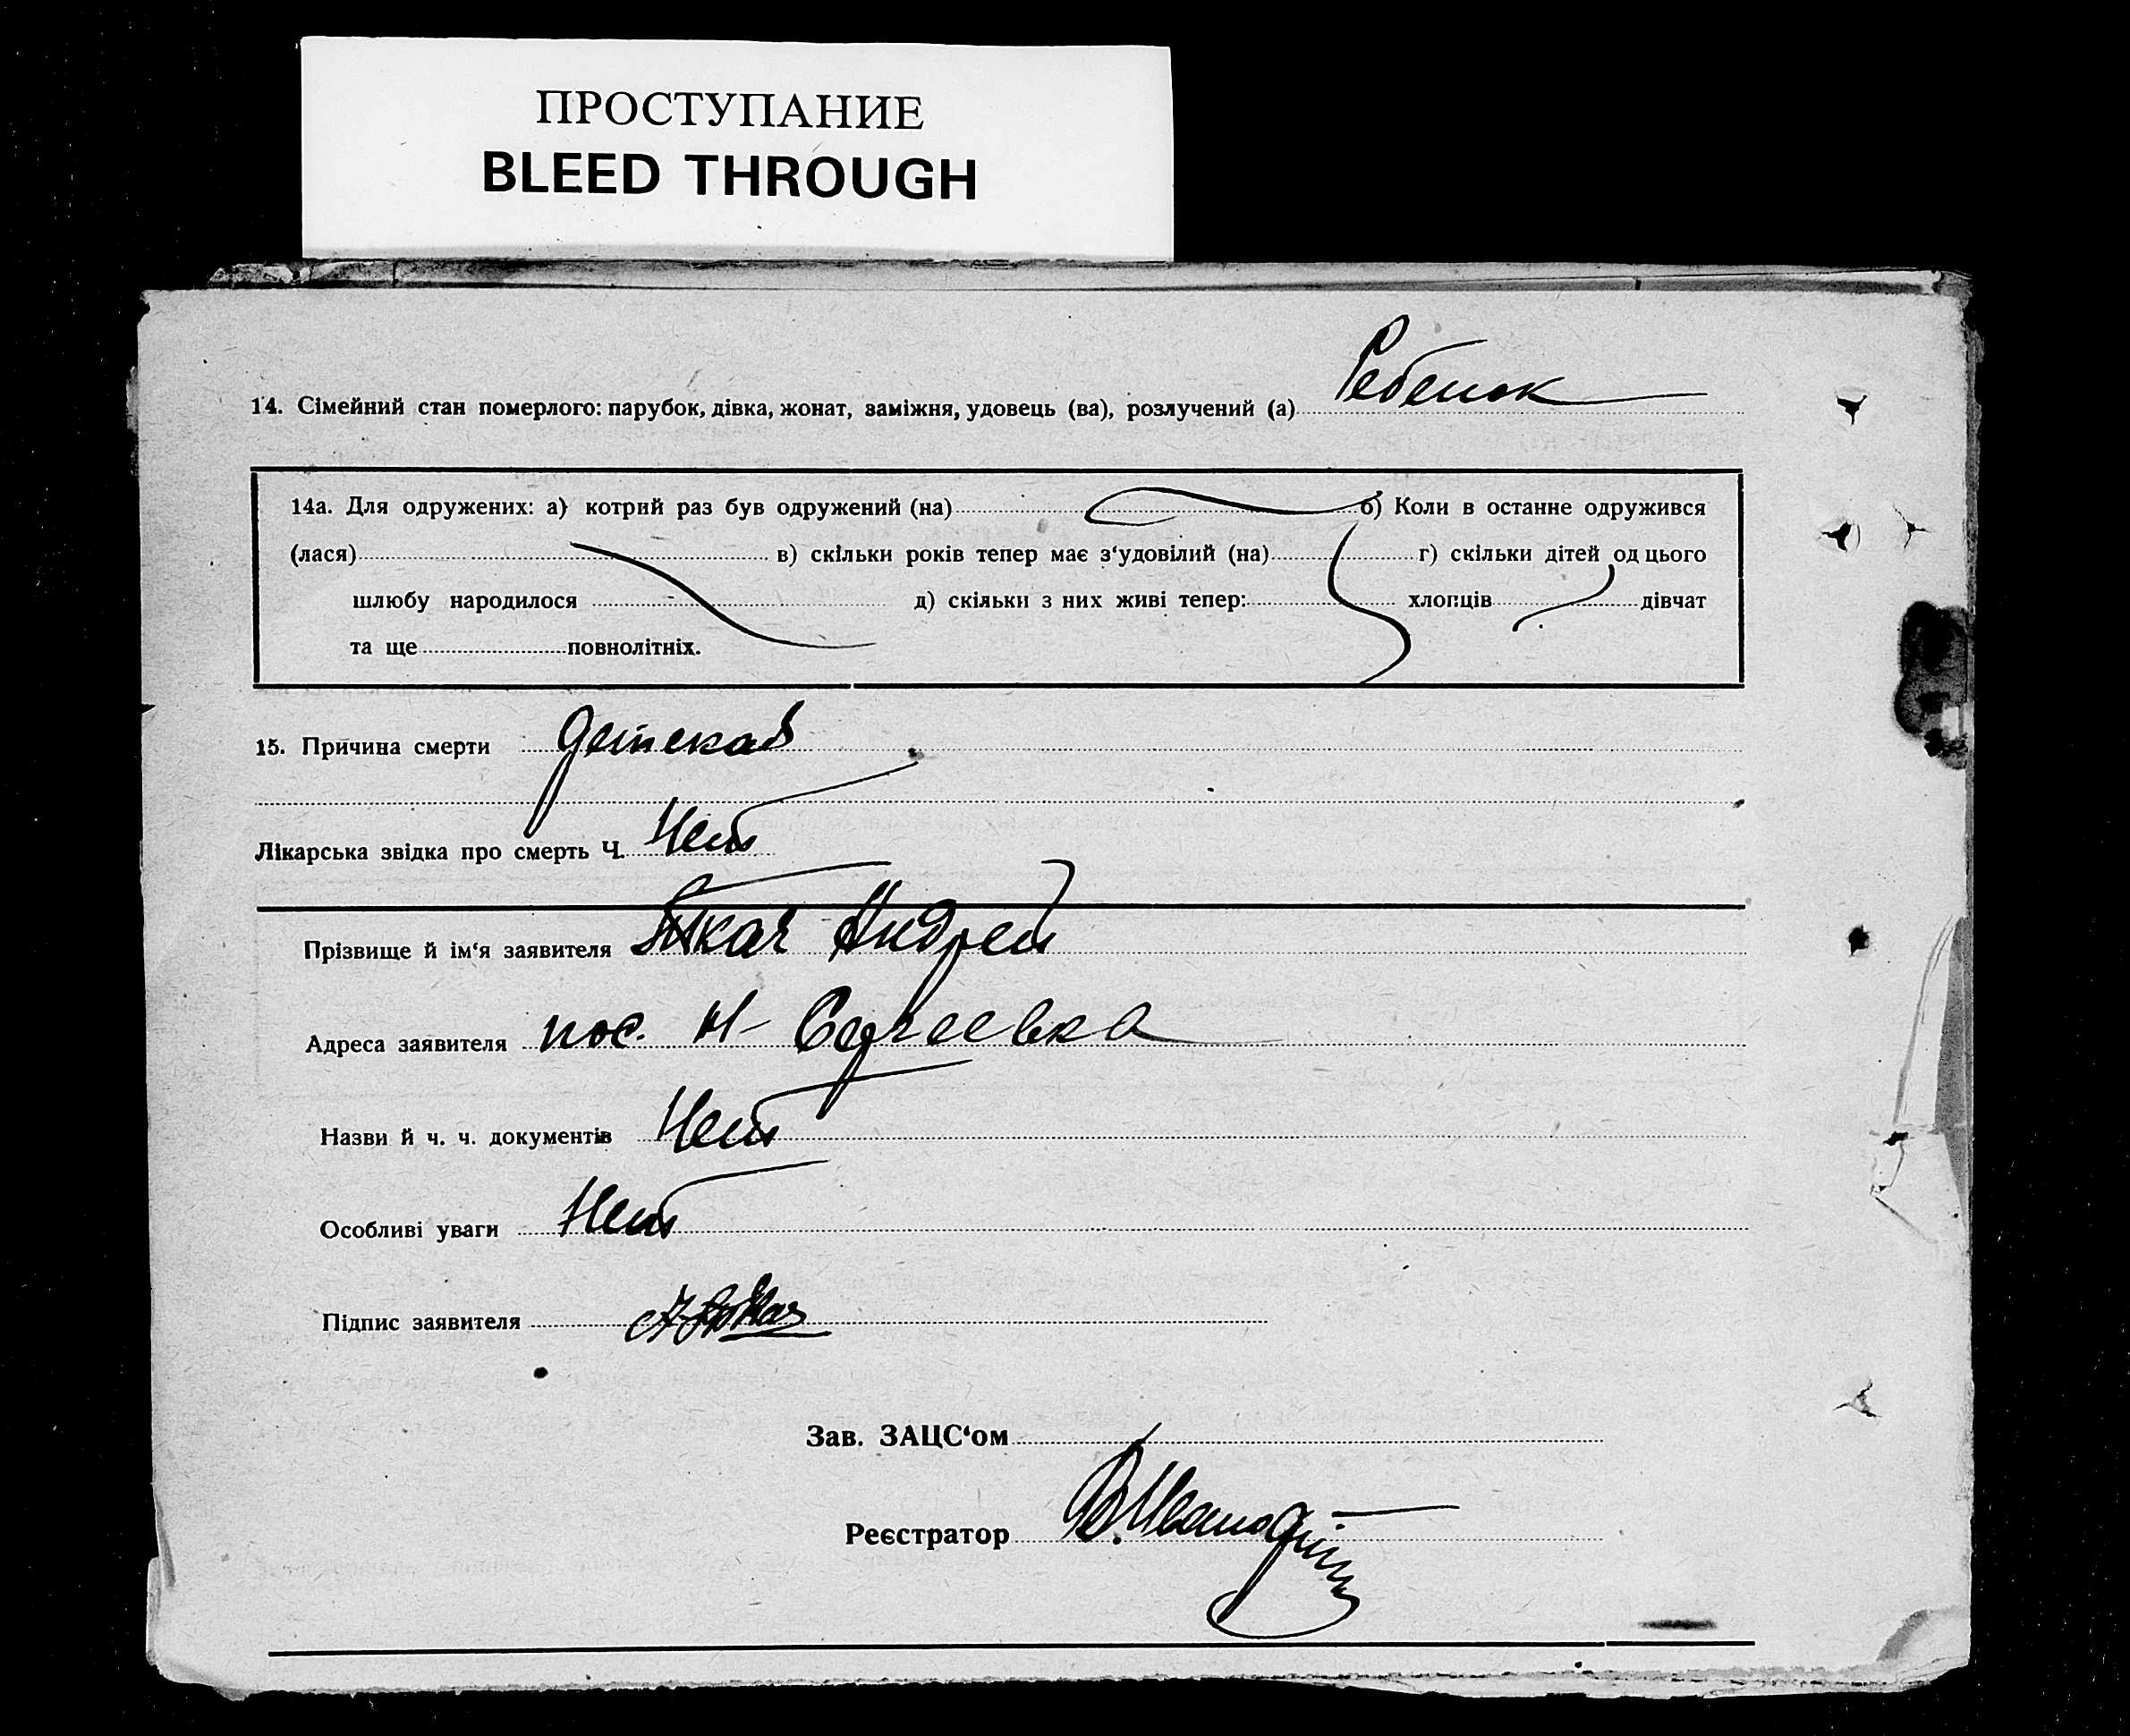 ПРОСТУПАНИЕ
BLEED THROUGH
14. Сімейний стан померлого: парубок, дівка, жонат, заміжня, удовець (ва), розлучений (а) Ребенок
14а. Для одружених: а) котрий раз був одружений (на) б) Коли в останне одружився
(лася) в) скільки років тепер має з‘удовілий (на) г) скільки дітей од цього
шлюбу народилося д) скільки з них живі тепер: хлопців дівчат
та ще повнолітніх.
15. Причина смерти детская
Лікарська звідка про смерть Ч. Нет
Прізвище й ім‘я заявителя Ткач Андрей
Адреса заявителя пос. Н-Сергеевка
Назви й ч. ч. документів Нет
Особливі уваги Нет
Підпис заявителя
Зав. ЗАЦС‘ом
Реєстратор